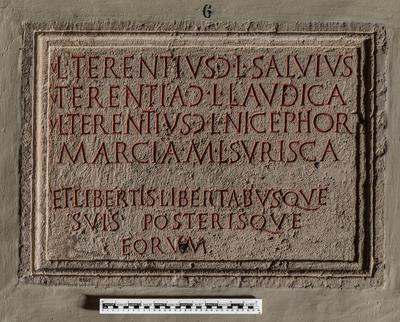 G
V L·TERENTIVS·Ɔ·L·SALVIVS
V TERENTIA Ɔ·L·LAVDICA
V L·TERENTIVS·Ɔ·L·NICEPHOR
MARCIA·M·L·SVRISCA
ET·LIBERTIS·LIBERTABVSQVE
SVIS POSTERISQVE
EORVM